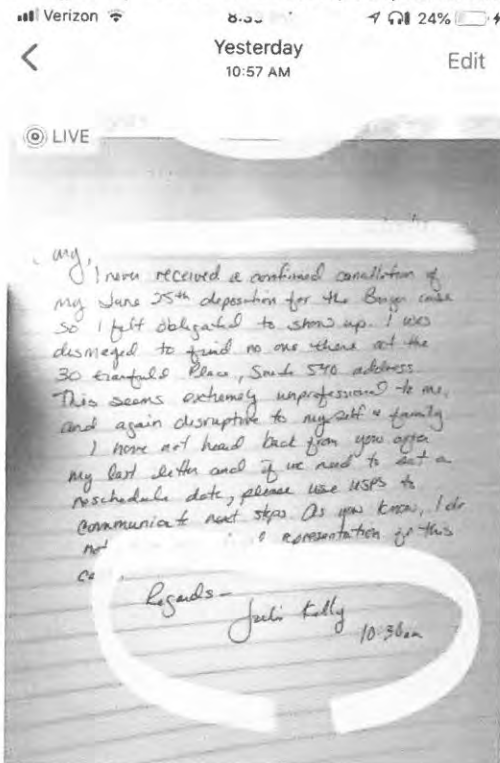 Verizon 24%
Yesterday
10:57 AM
Edit
LIVE
I never received a confirmed canellation of
my June 25th deposition for the case
so I felt obligated to show up. I was
dismayed to find no one there at the
30 Place, 540 address.
This seems extremely unprofessional to me,
and again disruptive to myself & family
I have not heard back from you after
my last letter and if we need to set a
reschedule date, please use USPS to
communicate next steps. As you know, I do
not representation of this
Regards -
Kelly
10:30am